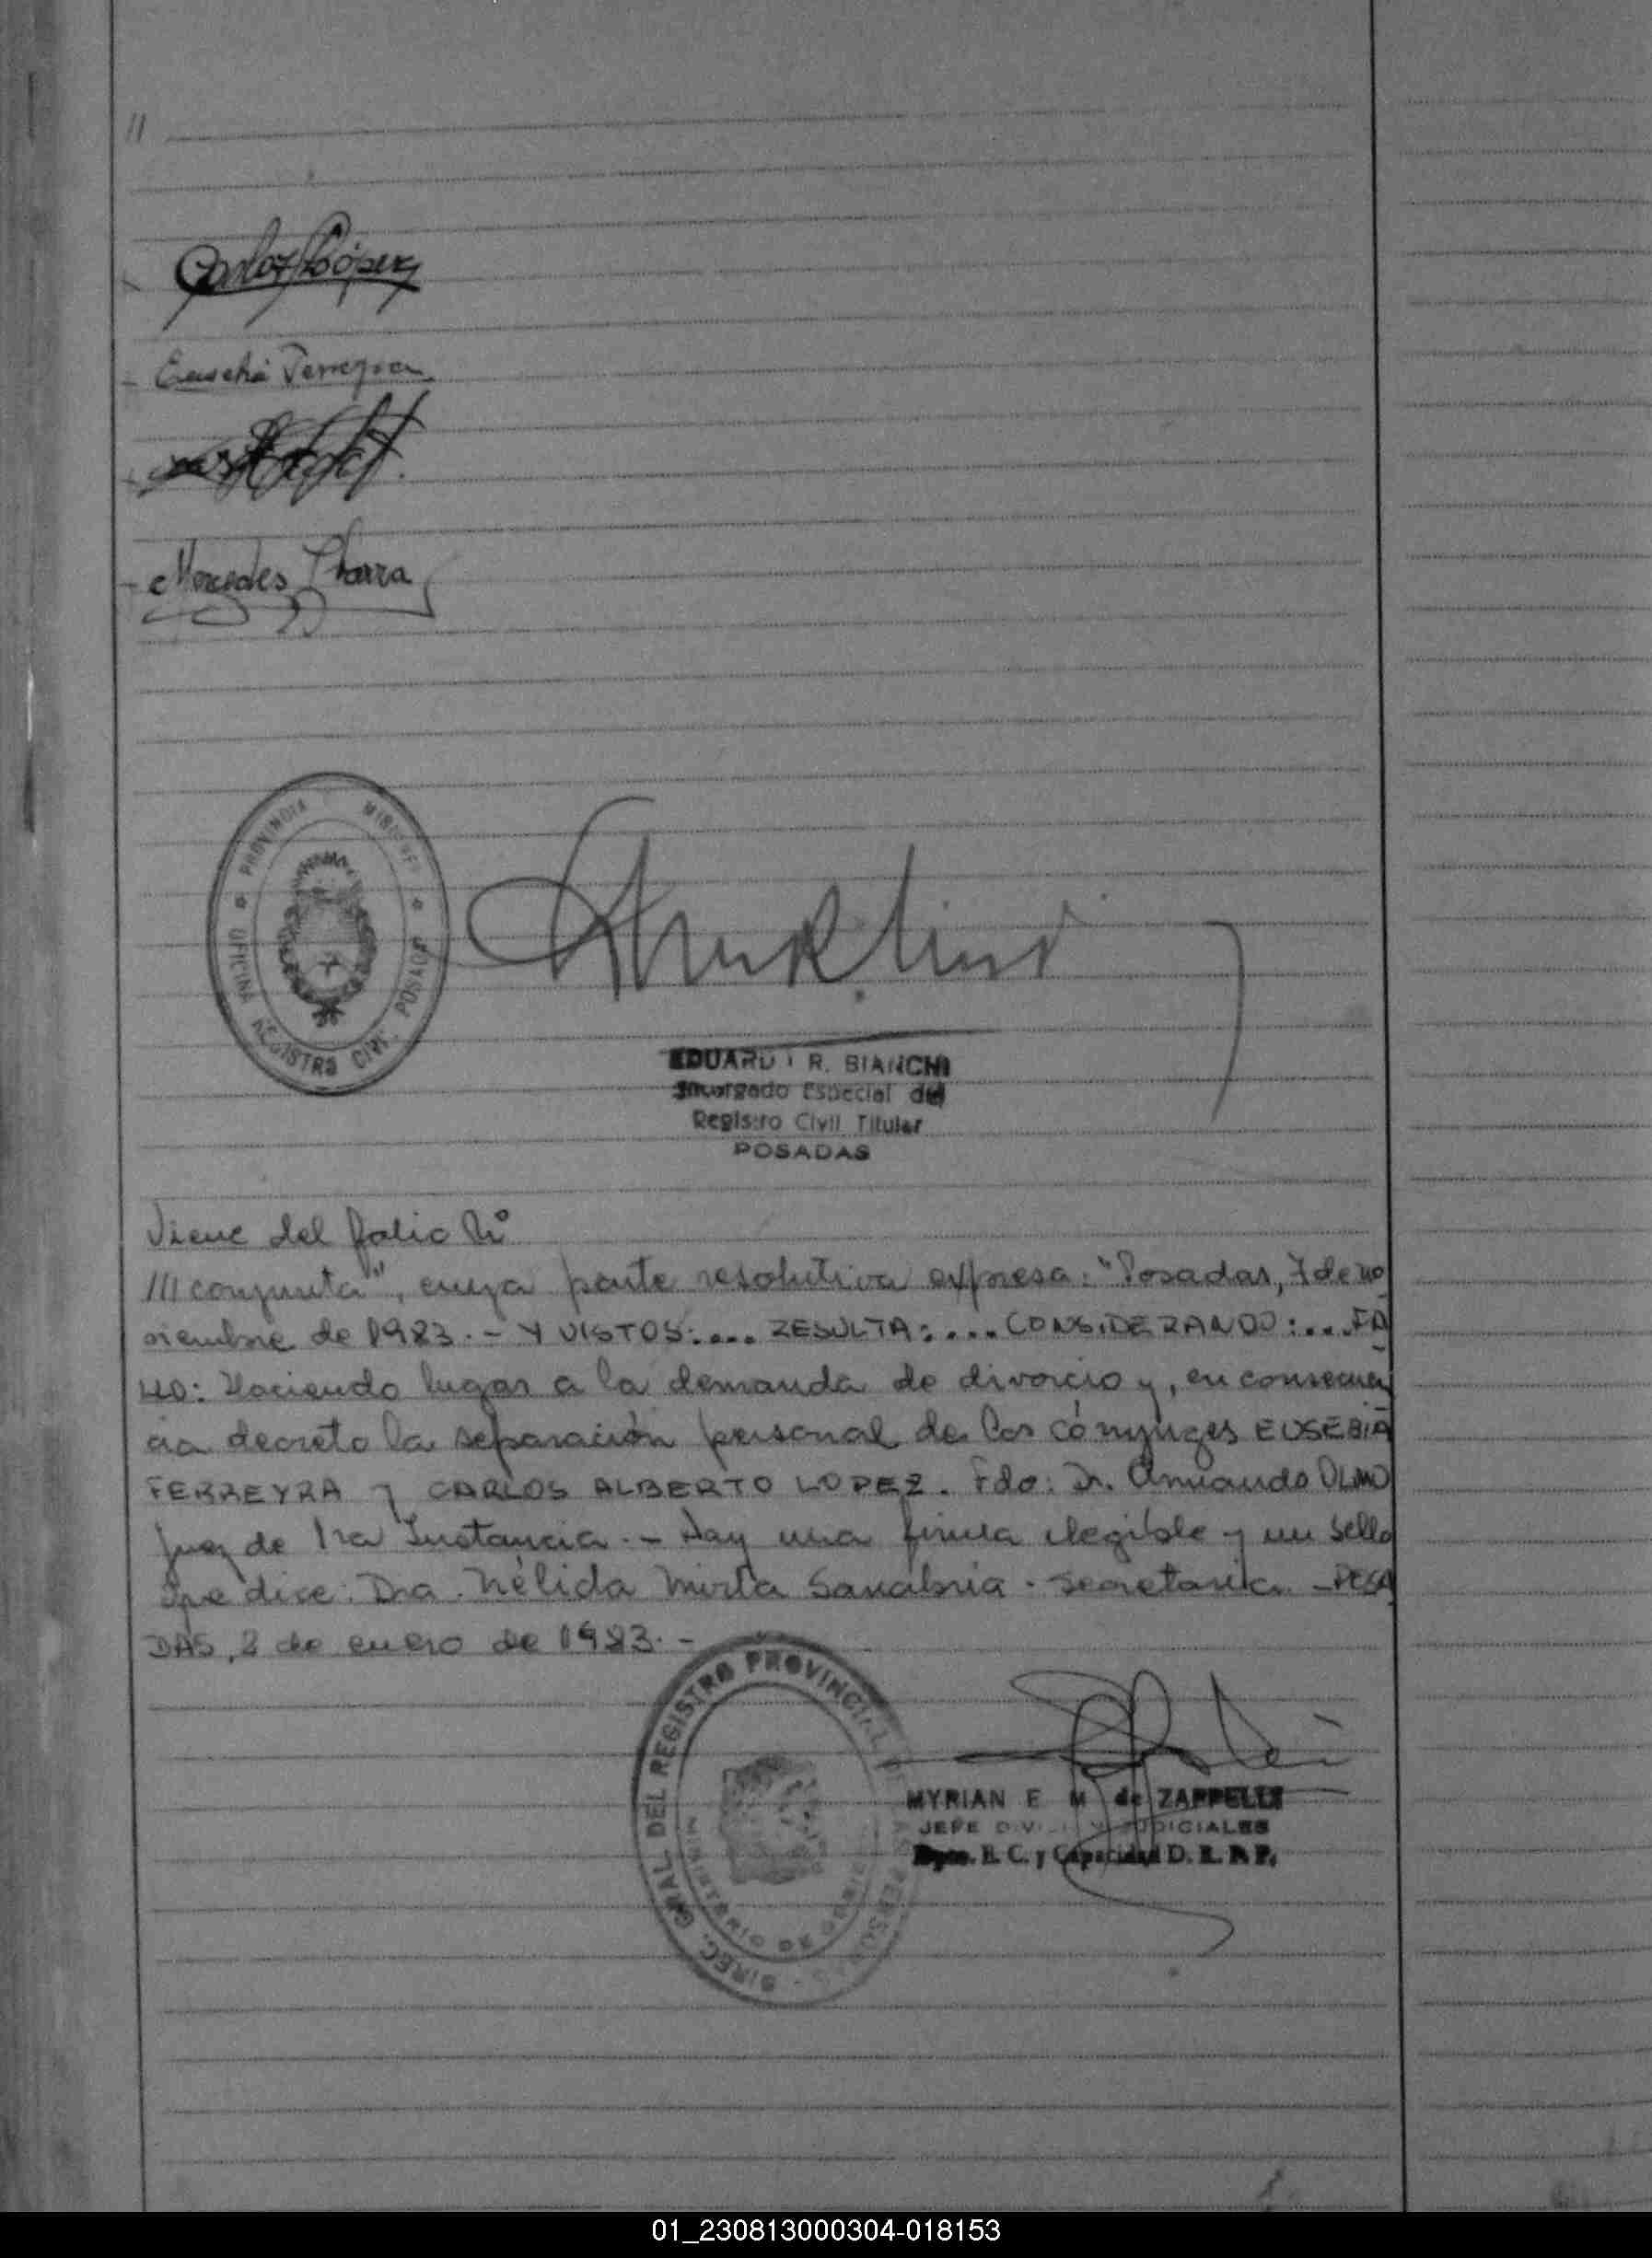 11
Carlos López
Eusebia Ferreyra
Mercedes Ybarra
PROVINCIA MISIONES
OFICINA REGISTRO CIVIL POSADAS
EDUARDO R. BIANCHI
Encargado Especial del
Registro Civil Titular
POSADAS
Viene del folio Nº
///conjunta", cuya parte resolutiva expresa: "Posadas, 7 de no
viembre de 1983.- Y VISTOS:.... RESULTA:.... CONSIDERANDO:....FA
LLO: Haciendo lugar a la demanda de divorcio y, en consecuen
cia decreto la separación personal de los cónyuges EUSEBIA
FERREYRA y CARLOS ALBERTO LOPEZ. Fdo: Dr. Armando OLMO
Juez de 1ra Instancia.- Hay una firma ilegible y un sello
que dice: Dra. Nélida Mirta Sanabria - Secretaria.-POSA
DAS, 2 de enero de 1983.-
DIREC. GRAL. DEL REGISTRO PROVINCIAL DE LAS PERSONAS
MINISTERIO DE GOBIERNO
MYRIAN E. M. de ZAPPELLI
JEFE DIV. JUDICIALES
Dpto. E. C. y Capacidad D. R. P. P.
01_230813000304-018153